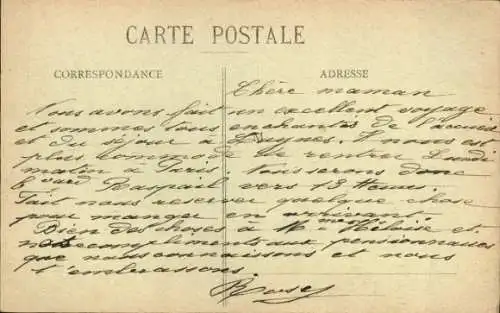 CARTE POSTALE
CORRESPONDANCE
ADRESSE
Chère maman
Nous avons fait un excellent voyage
et sommes tous enchantés de l'accueil
et du séjour à Il nous est
plus commode de rentrer Lundi
matin à Paris, serons donc
6 vard Raspail vers 13 Heures.
Fait nous reserver quelque chose
pour manger en arrivant
Bien des choses à Me Héloïse et
nos complements aux pensionnaires
que nous connaissons et nous
t'embrassons.